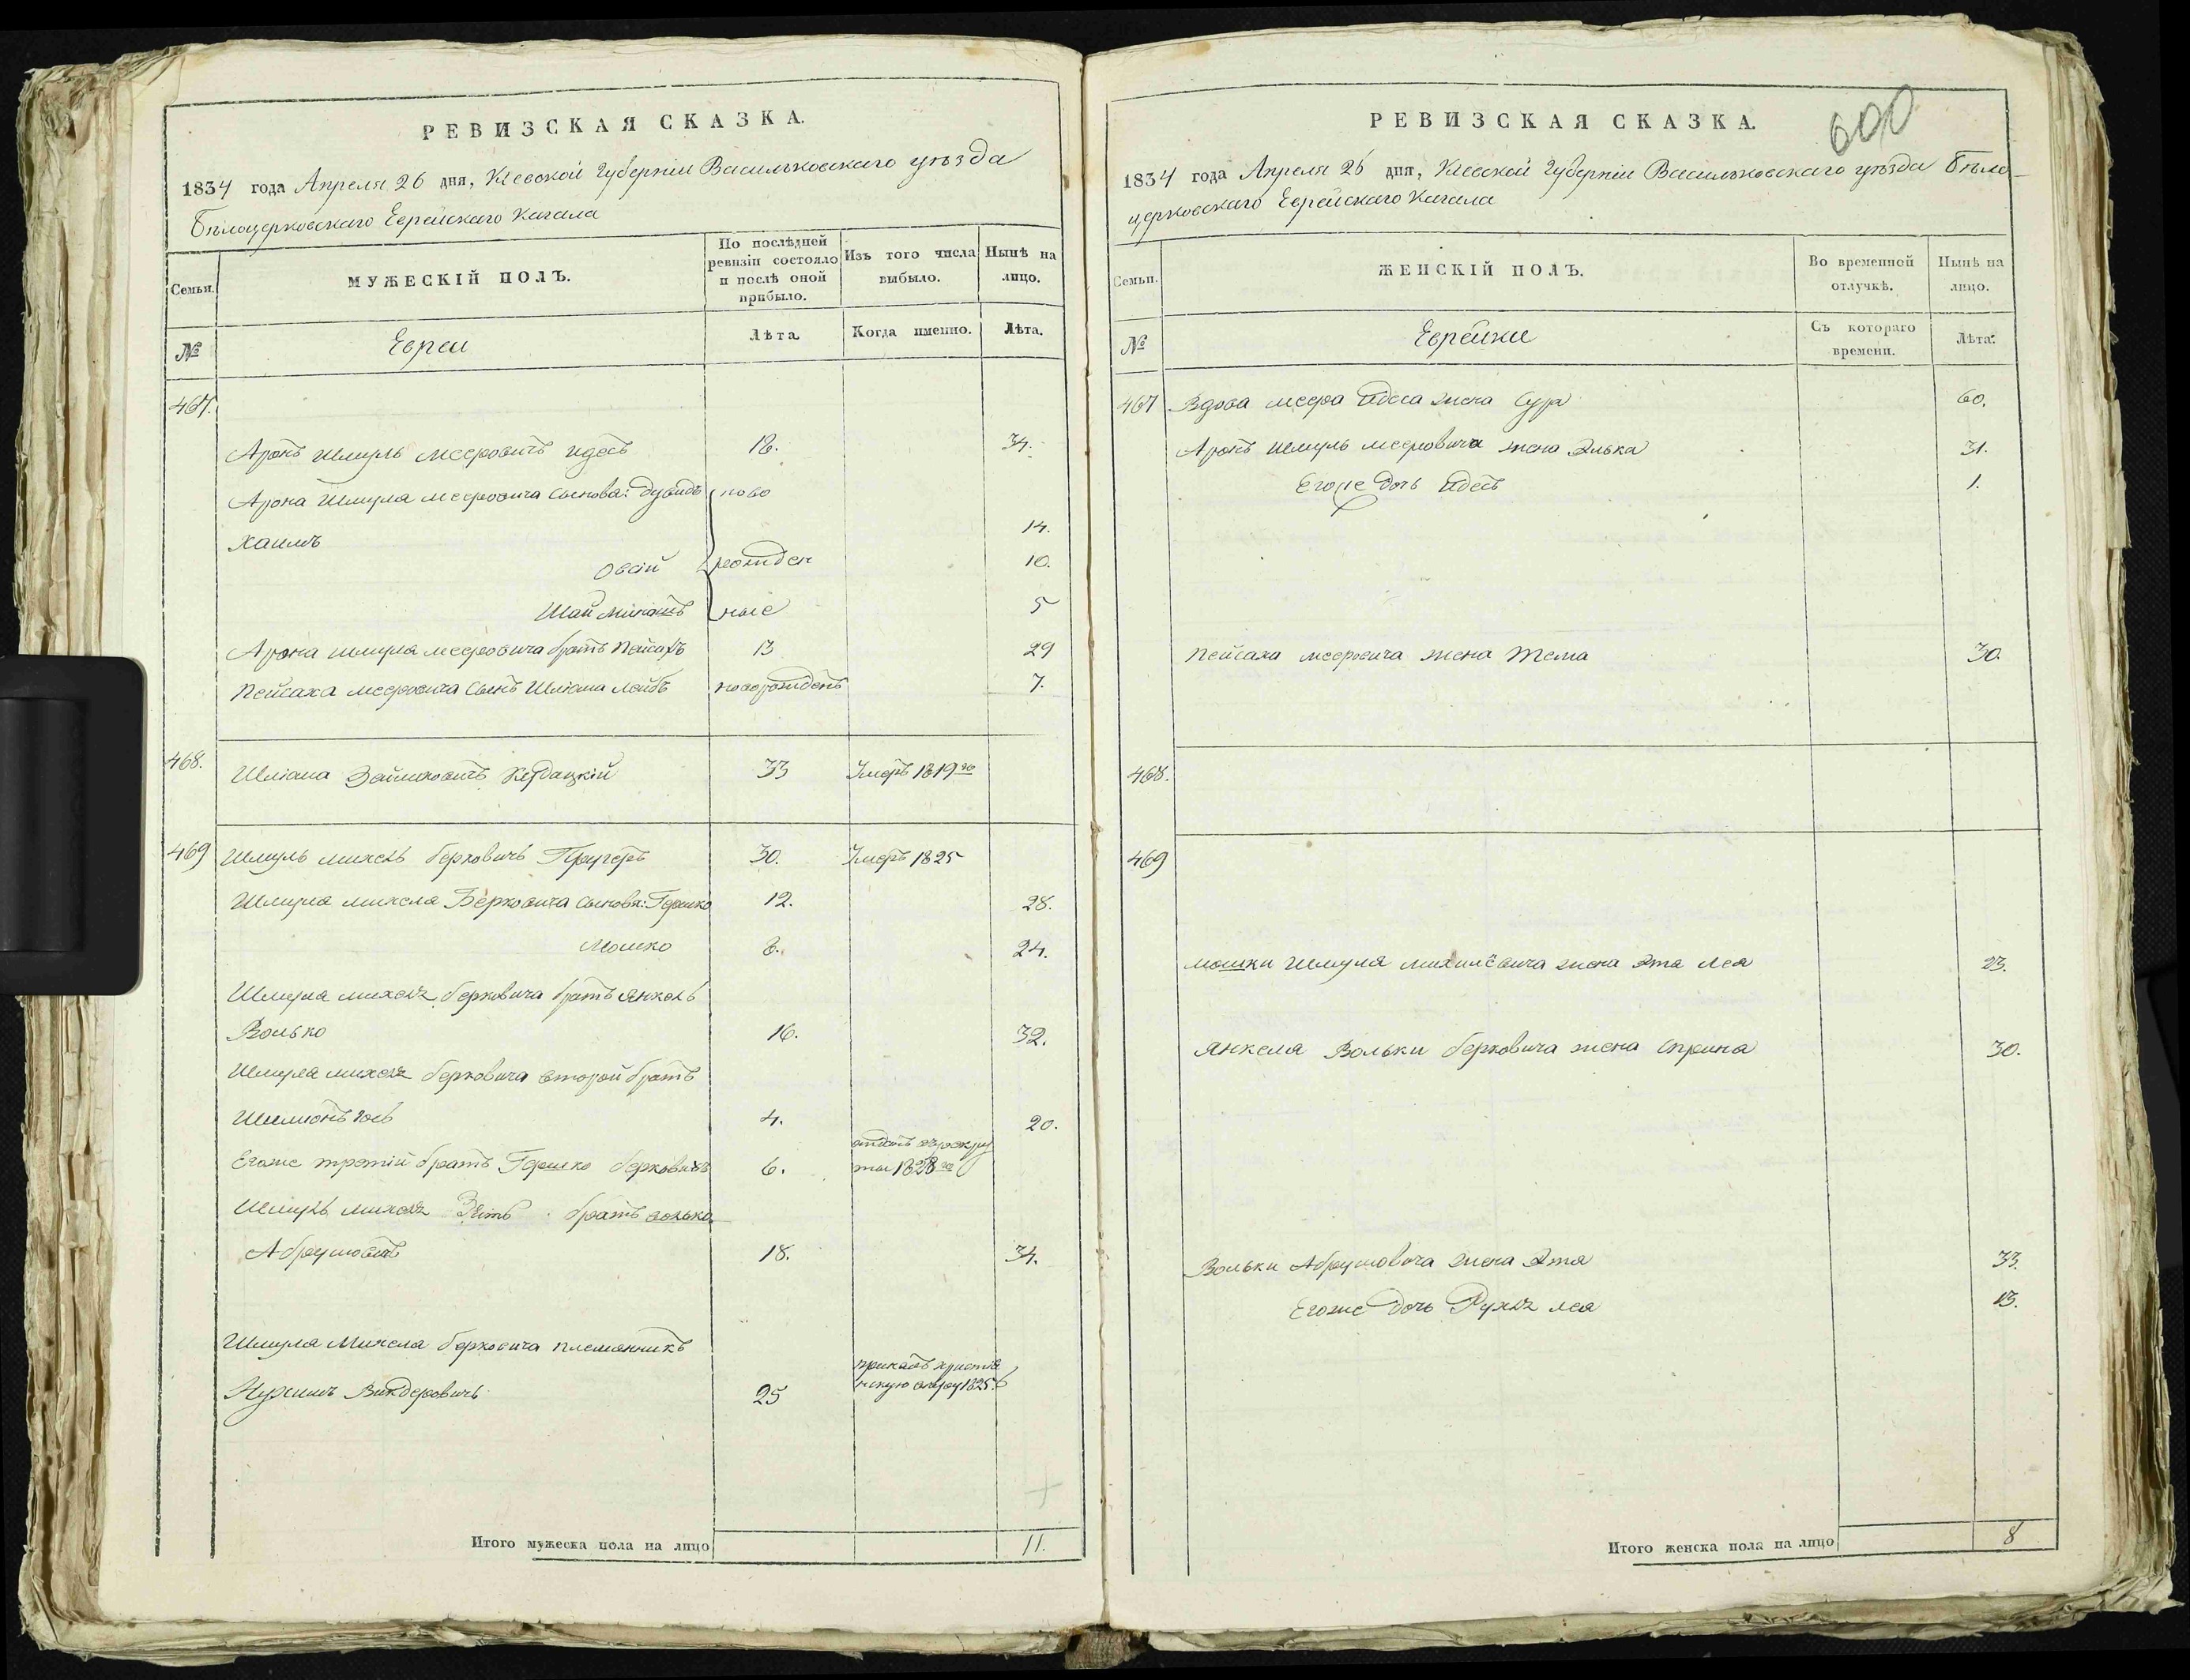 РЕВИЗСКАЯ СКАЗКА.
1834 года Апреля 26 дня, Кіевской Губерніи Васильковскаго уѣзда
Бѣлоцерковскаго Еврейскаго Кагала
Семьи.
МУЖЕСКІЙ ПОЛЪ.
По послѣдней ревизіи состояло и послѣ оной прибыло.
Изъ того числа выбыло.
Нынѣ на лицо.
№
Евреи
Лѣта.
Когда именно.
Лѣта.
467.
Аронъ Шмуль Мееровичъ 18. 34.
Арона Шмуля Мееровича сыновья: Дувидъ ново
Хаимъ 14.
Овсій рожден 10.
Шай ные 5
Арона Шмуля Мееровича братъ Пейсахъ 13 29
Пейсаха Мееровича сынъ Шліома Лейбъ новорожденъ 7.
468.
Шліома Зайликовичъ 33 Умеръ 1819го
469
Шмуль Михель Берковичъ 30. Умеръ 1825
Шмуля Михеля Берковича сыновья: Гершко 12. 28.
Мошко 8. 24.
Шмуля Михеля Берковича братъ Янкель
Волько 16. 32.
Шмуля Михеля Берковича второй братъ
Шлиома 4. 20.
Егоже третій братъ Гершко Берковичъ 6. отданъ в рекру
ты 1828го
Шмуль Михеля Зять братъ Волько
Абрумовичъ 18. 34.
Шмуля Михеля Берковича племянникъ
Нухимъ 25 принялъ христіа
нскую вѣру 1825
Итого мужеска пола на лицо 11.
600
РЕВИЗСКАЯ СКАЗКА.
1834 года Апреля 26 дня, Кіевской Губерніи Васильковскаго уѣзда Бѣло-
церковскаго Еврейскаго Кагала
Семьи.
ЖЕНСКІЙ ПОЛЪ.
Во временной отлучкѣ.
Нынѣ на лицо.
№
Еврейки
Съ котораго времени.
Лѣта.
467 Вдова Меера Идеса жена Сура 60.
Аронъ Шмуль Мееровича жена Элька 31.
Егоже дочь Идесъ 1.
Пейсаха Мееровича жена Тема 30.
468.
469
Мошки Шмуля Михилевича жена Эта Лея 23.
Янкеля Вольки Берковича жена Сприна 30.
Вольки Абрумовича жена Этя 33.
Егоже дочь Рухля Лея 13.
Итого женска пола на лицо 8